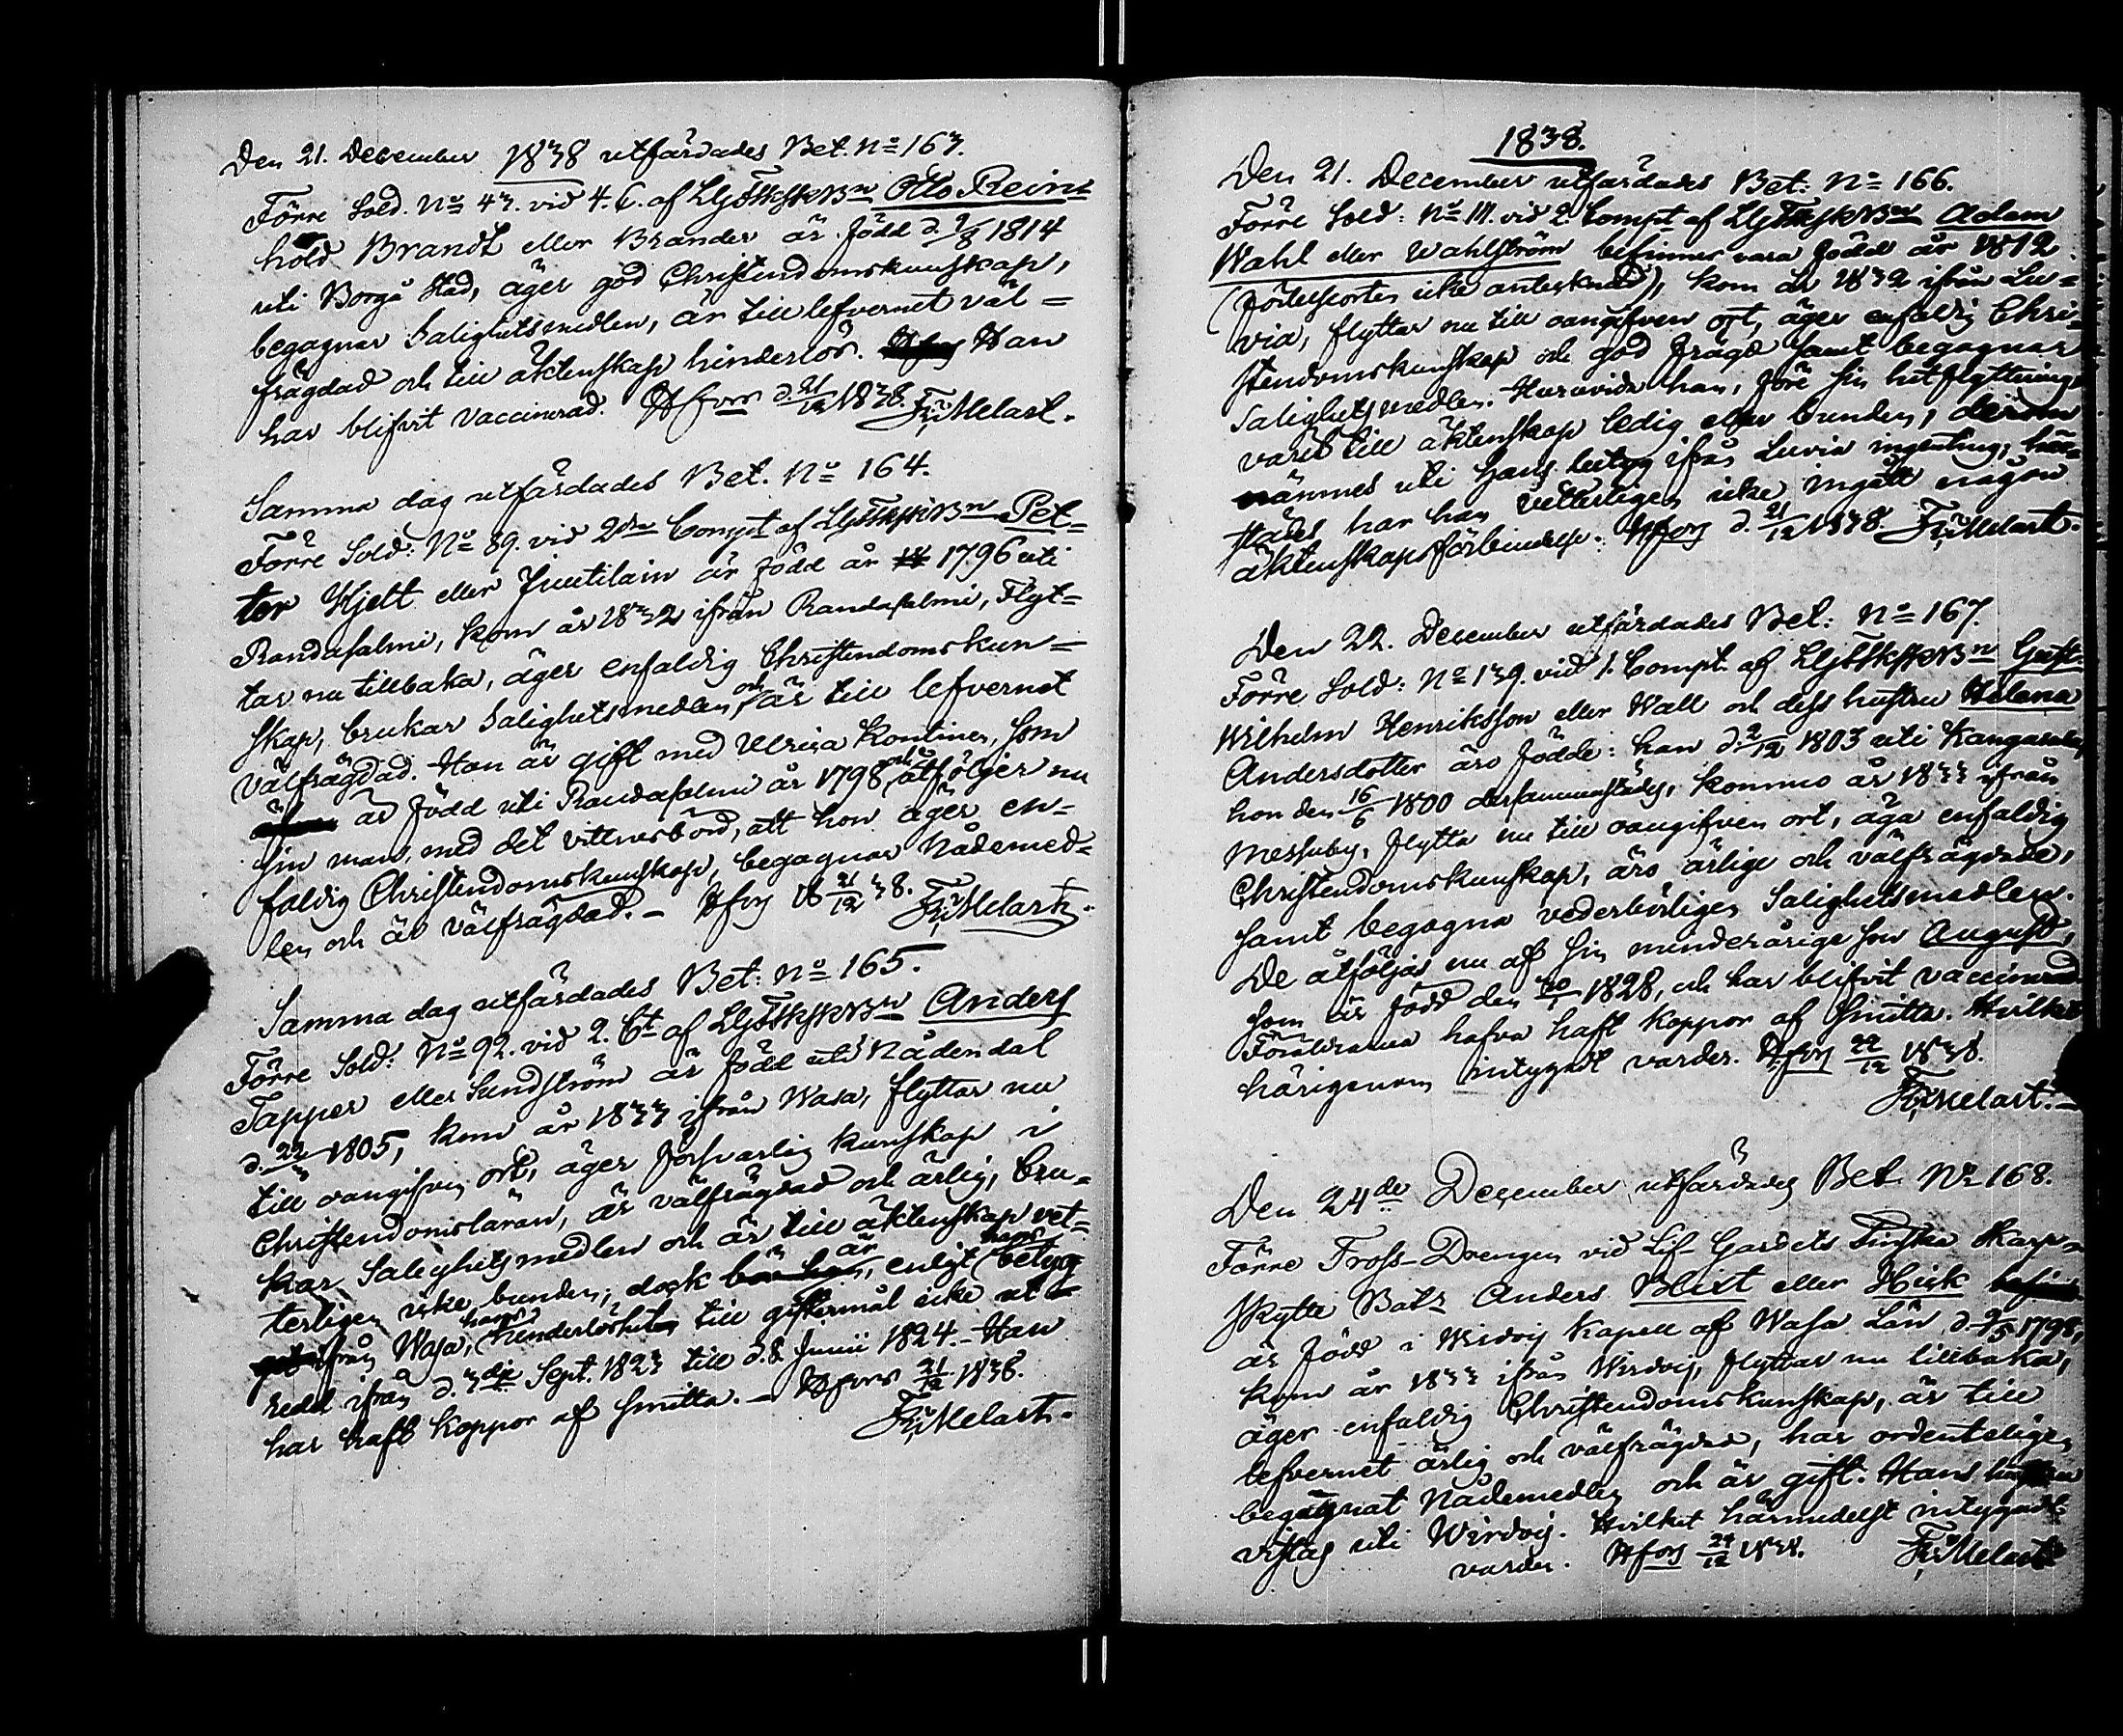 Den 21. December 1838 utfärdades Bet. No 163.
Förre Sold. No 43. vid 4. C. af LGFSkSkBn Otto Rein=
hold Brandt eller Brander är född d. 9/8 1814
uti Borgå Stad, äger god Christendomskunskap,
begagnar Salighetsmedlen, är till lefvernet väl=
frägdad och till äktenskap hinderlös. Han
har blifvit vaccinerad. Hfors d. 21/12 1838. Fr. Melart.
Samma dag utfärdades Bet. No 164.
Förre Sold: No 89. vid 2dra Compt af LGFSkSkBn Pet=
ter Hjelt eller Juutilain är född år 1796 uti
Randasalmi, kom år 1832 ifrån Randasalmi, Flyt=
tar nu tillbaka, äger enfaldig Christendomskun=
skap, brukar Salighetsmedlen, och är till lefvernet
välfrägdad. Han är gift med Ulrica Kontinen, som
är född uti Randasalmi år 1798 och åtföljer nu
sin man, med det vittnesbörd, att hon äger en=
faldig Christendomskunskap, begagnar Nådemed=
len och är välfrägdad. – Hfors 18 21/12 38. Fr. Melart.
Samma dag utfärdades Bet: No 165.
Förre Sold: No 92. vid 2. Ct af LGFSkSkBn Anders
Tapper eller Sundström är född uti Nådendal
d. 22/3 1805, kom år 1833 ifrån Wasa, flyttar nu
till oangifven ort, äger försvarlig kunskap i
Christendomsläran, är välfrägdad och ärlig, bru=
kar Salighetsmedlen och är till äktenskap vet=
terligen icke bunden, dock är, enligt hans betyg
ifrån Wasa, hans hinderlöshet till giftermål icke ut=
redd ifrån d. 3dje Sept. 1823 till d. 8 Junii 1824. – Han
har haft koppor af smitta. – Hfors 21/12 1838.
Fr. Melart.
1838.
Den 21. December utfärdades Bet: No 166.
Förre Sold: No 111. vid 2. Compt af LGFSkSkBn Adam
Wahl eller Wahlström befinnes vara född år 1812
(födelseorten icke antecknad), kom år 1832 ifrån Lu=
via, flyttar nu till oangifven ort, äger enfaldig Chri=
stendomskunskap och god frägd samt begagnar
Salighetsmedlen. Huruvida han, före sin hitflyttning,
varit till äktenskap ledig eller bunden, derom
nämnes uti hans betyg ifrån Luvia ingenting; här=
städes har han vetterligen icke ingått någon
äktenskapsförbindelse. Hfors d. 21/12 1838. Fr. Melart.
Den 22. December utfärdades Bet: No 167.
Förre Sold: No 139. vid 1. Compt. af LGFSkSkBn Gust.
Wilhelm Henriksson eller Wall och dess hustru Helena
Andersdotter äro födde: han d. 2/12 1803 uti Kangasala,
hon den 16/6 1800 dersammastädes, kommo år 1833 ifrån
Messuby, flytta nu till oangifven ort, äga enfaldig
Christendomskunskap, äro ärlige och välfrägdade,
samt begagna vederbörligen Salighetsmedlen.
De åtföljas nu af sin minderårige son August,
som är född den 20/1 1828, och har blifvit vaccinerad
Föräldrarna hafva haft koppor af smitta. Hvilket
härigenom intygadt varder. Hfors 22/12 1838.
Fr. Melart. –
Den 24de December utfärdades Bet. No 168.
Förre Tross-Drengen vid Lif-Gardets Finska Skarp=
skytte Batn Anders Blixt eller Hick
är född i Wirdois Kapell af Wasa Län d. 9/5 1798,
kom år 1833 ifrån Wirdois, flyttar nu tillbaka,
äger enfaldig Christendomskunskap, är till
lefvernet ärlig och välfrägdad, har ordenteligen
begagnat Nådemedlen och är gift. Hans hustru
vistas uti Wirdois. Hvilket härmedelst intygadt
varder. Hfors 24/12 1838. Fr. Melart